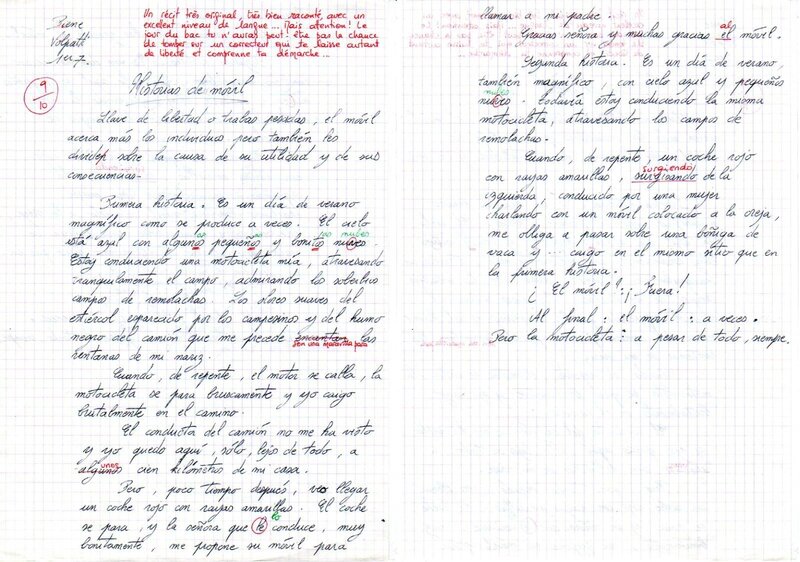 Pierre
Volpatti
1ere 7
Un récit très original, très bien raconté, avec un
excellent niveau de langue... Mais attention! Le
jour du bac tu n'auras peut-être pas la chance
de tomber sur un correcteur qui te laisse autant
de liberté et comprenne ta démarche...
9/10
Historias de móvil
Llave de libertad o trabas pesadas, el móvil
acerca más los individuos pero también les
dividen sobre la causa de su utilidad y de sus
consecuencias.
Primera historia. Es un día de verano
magnífico como se produce a veces. El cielo
está azul con algunos pequeños y bonitos nuves.
as as as nubes
Estoy conduciendo una motocicleta mía, atravesando
tranquilamente el campo, admirando los soberbios
campos de remolachas. Los olores suaves del
estiércol esparcido por los campesinos y del humo
negro del camión que me precede encantan las
son una maravilla para
ventanas de mi nariz.
Cuando, de repente, el motor se calla, la
motocicleta se para bruscamente y yo caigo
brutalmente en el camino.
El conducta del camión no me ha visto
y yo quedo aquí, sólo, lejos de todo, a
unos
algunos cien kilómetros de mi casa.
Pero, poco tiempo después, veo llegar
un coche rojo con rayas amarillas. El coche
lo
se para, y la señora que le conduce, muy
bonitamente, me propone su móvil para
llamar a mi padre.
al
Gracias señora y muchas gracias el móvil.
Segunda historia. Es un día de verano,
también magnífico, con cielo azul y pequeños
nubes
nuves. Todavía estoy conduciendo la misma
motocicleta, atravesando los campos de
remolachas.
Cuando, de repente, un coche rojo
surgiendo
con rayas amarillas, surgisando de la
izquierda, conducido por una mujer
charlando con un móvil colocado a la oreja,
me obliga a pasar sobre una boñiga de
vaca y ... caigo en el mismo sitio que en
la primera historia.
¡ El móvil? : ¡ Fuera!
Al final : el móvil : a veces.
Pero la motocicleta : a pesar de todo, siempre.